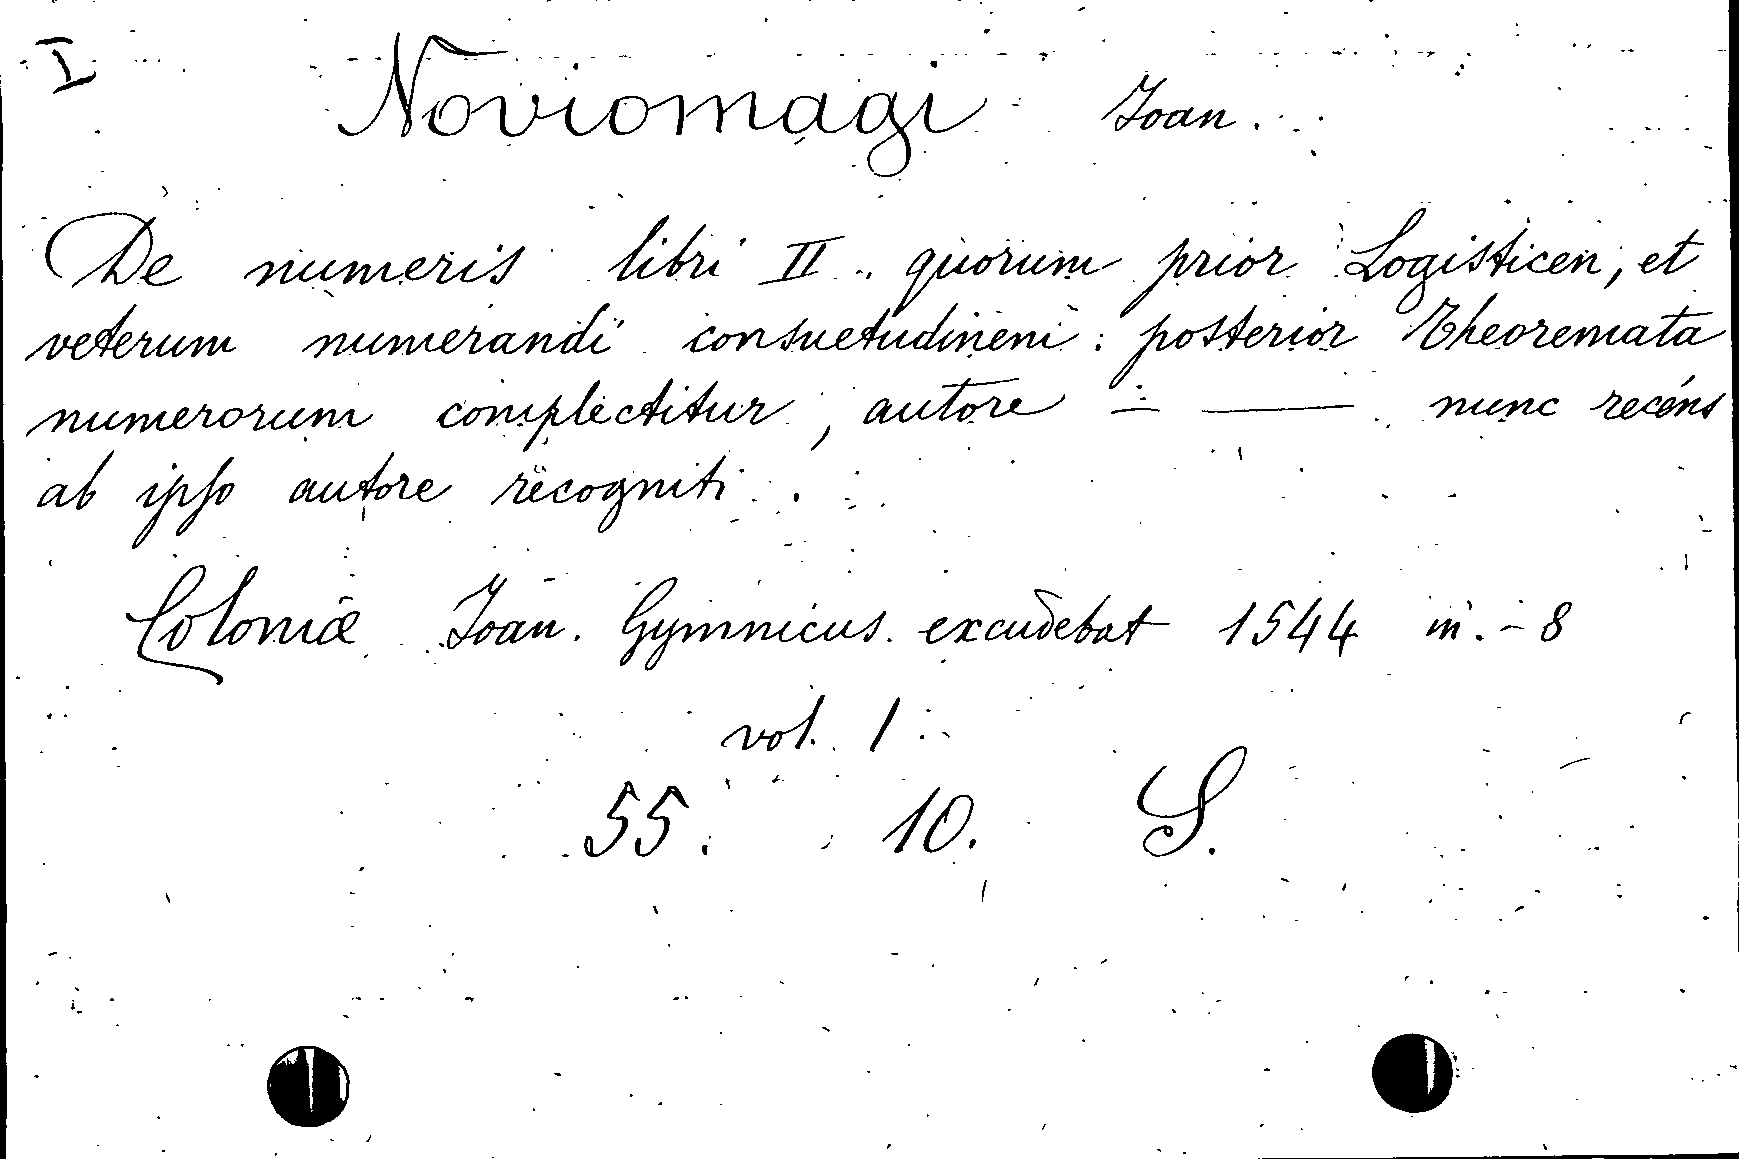 I
Noviomagi Joan.
De numeris libri II. quorum prior Logisticen, et
veterum numerandi consuetudinem: posterior Theoremata
numerorum complectitur, autore — —— nunc recéns
ab ipso autore recogniti.
Coloniæ Joan. Gymnicus excudebat 1544 in.-8
vol. 1
55. 10. S.